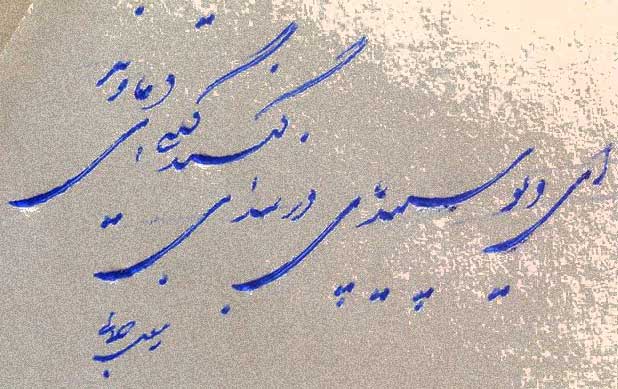 ای دیو سپید پای در بند
ای گنبد گیتی ای دماوند